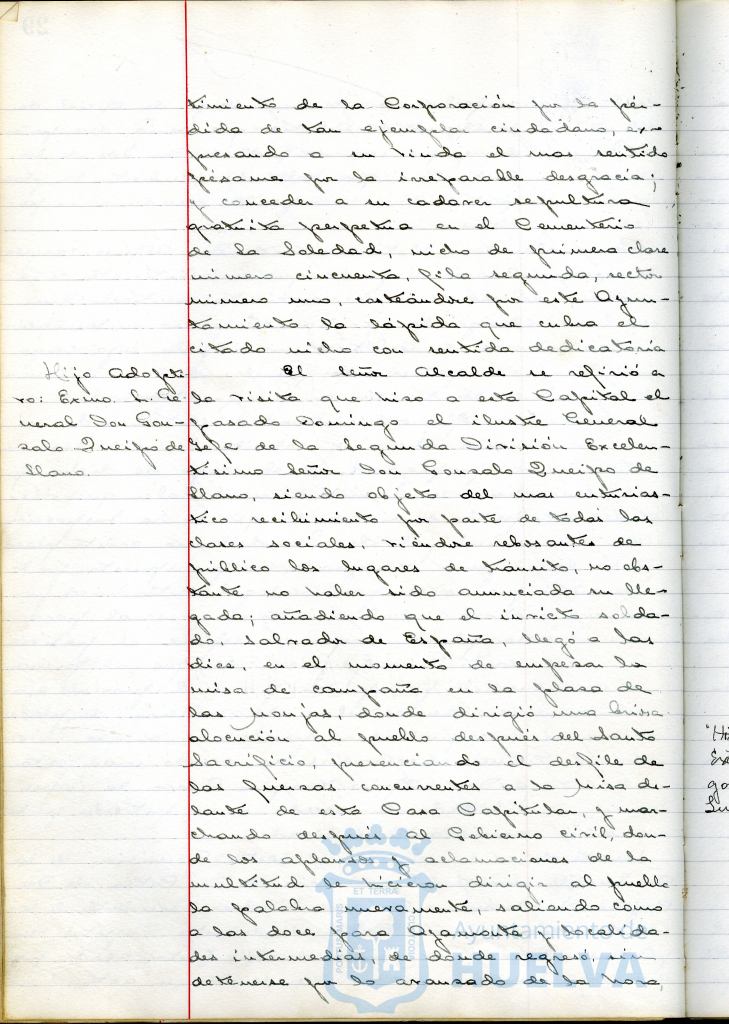 timiento de la Corporación por la pér-
dida de tan ejemplar ciudadano, ex-
presando a su viuda el mas sentido
pésame por la irreparable desgracia;
y conceder a su cadaver sepultura
gratuita perpetua en el Cementerio
de la Soledad, nicho de primera clase
número cincuenta, fila segunda, sector
número uno, costeándose por este Ayun-
tamiento la lápida que cubra el
citado nicho con sentida dedicatoria
Hijo adopti-
vo: Excmo. Sr. Ge-
neral Don Gon-
zalo Queipo de
Llano.
El Señor Alcalde se refirió a
la visita que hizo a esta Capital el
pasado Domingo el ilustre General
Jefe de la Segunda División Excelen-
tísimo Señor Don Gonzalo Queipo de
Llano, siendo objeto del mas entusias-
tico recibimiento por parte de todas las
clases sociales, viéndose rebosantes de
público los lugares de tránsito, no obs-
tante no haber sido anunciada su lle-
gada; añadiendo que el invicto solda-
do, salvador de España, llegó a las
diez, en el momento de empezar la
misa de campaña en la plaza de
las Monjas, donde dirigió una
alocución al pueblo después del Santo
Sacrificio, presenciando el desfile de
las fuerzas concurrentes a la Misa de-
lante de esta Casa Capitular, y mar-
chando después al Gobierno civil, don-
de los aplausos y aclamaciones de la
multitud le hicieron dirigir al pueblo
la palabra nuevamente, saliendo como
a las doce para Ayamonte y localida-
des intermedias, de donde regresó, sin
detenerse por lo avanzado de la hora,
Ayuntamiento de
HUELVA